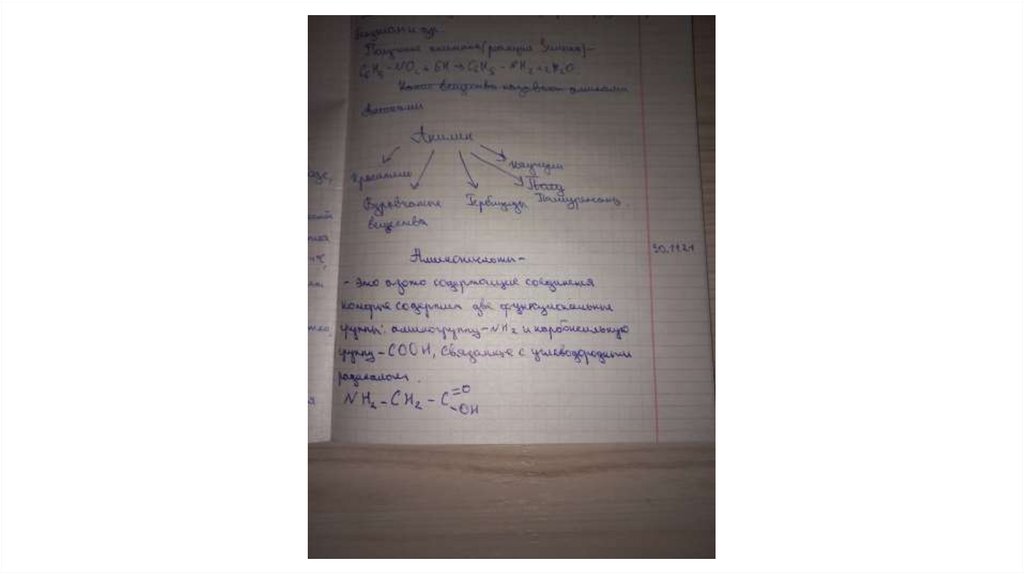 Получение анилина (реакция Зинина) -
C6H5 - NO2 + 6H → C6H5 - NH2 + 2H2O.
Какие вещества называют аминами
Анилин
Красители
Взрывчатые
вещества
Гербициды
Полиуретаны
30.11.21
Аминокислоты -
- Это азото содержащие соединения
которые содержат две функциональные
группы: аминогруппу - NH2 и карбоксильную
группу - COOH, связанные с углеводородным
радикалом.
NH2 - CH2 - C =O
- OH